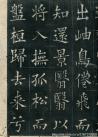 出岫鳥倦飛而
知還景翳翳以
將入撫孤松而
盤桓歸去来兮